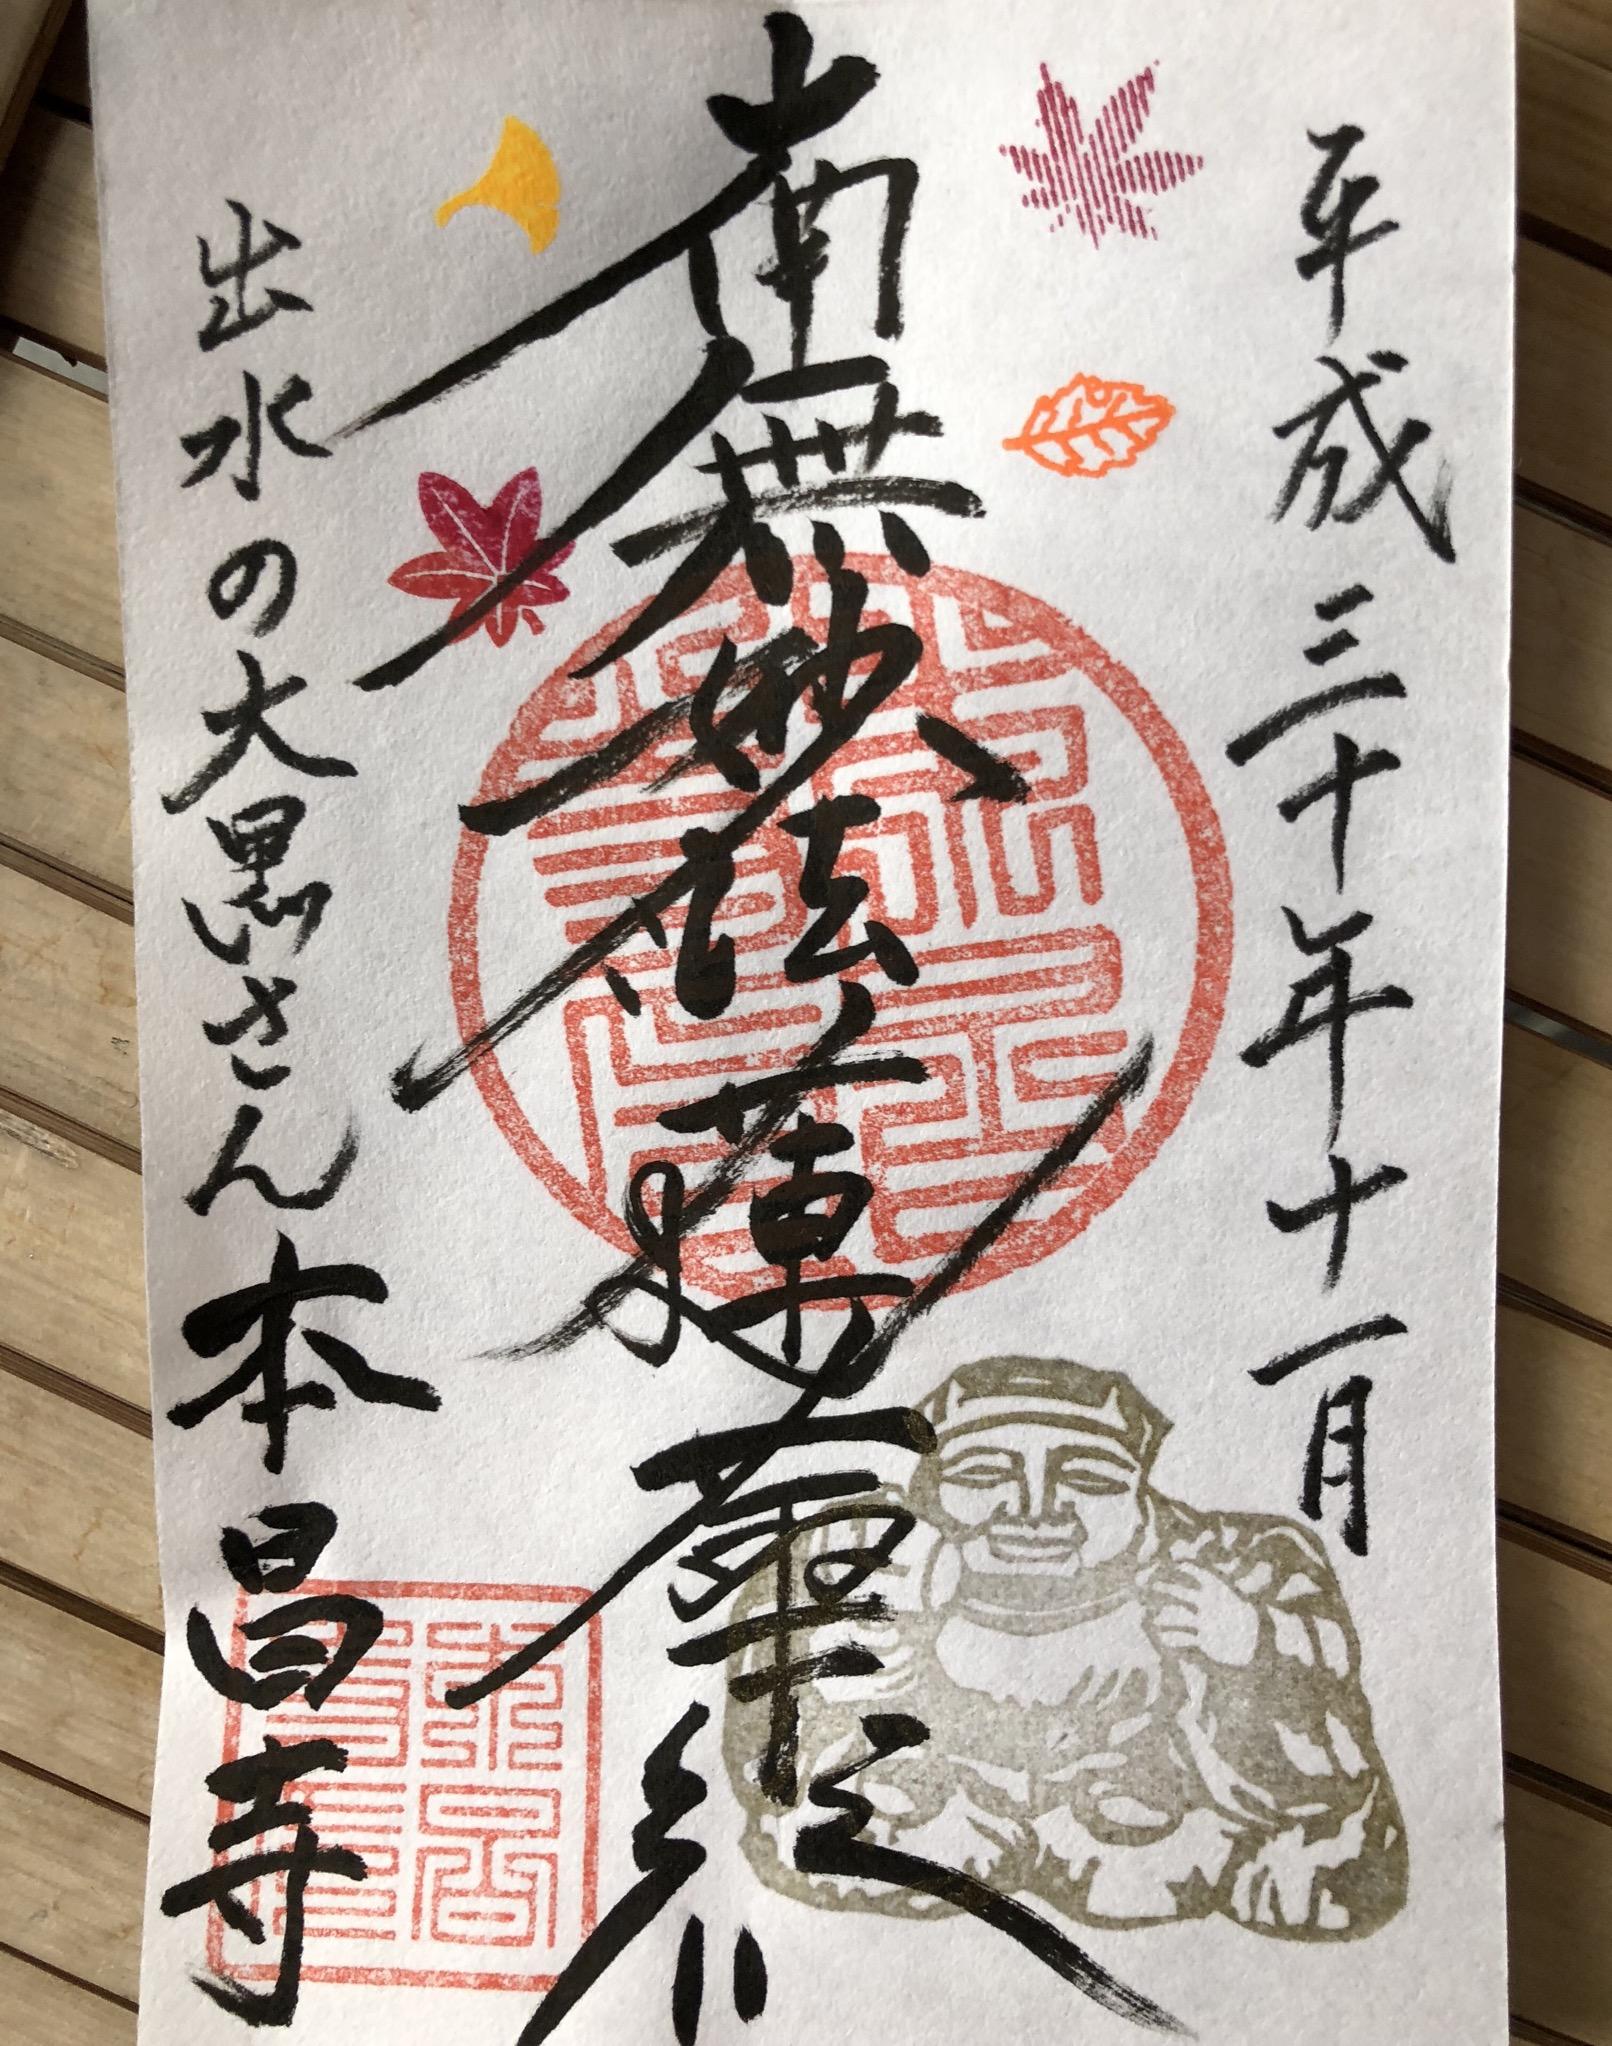 平成三十年十一月
南無妙法蓮華経
出水の大黒さん本昌寺